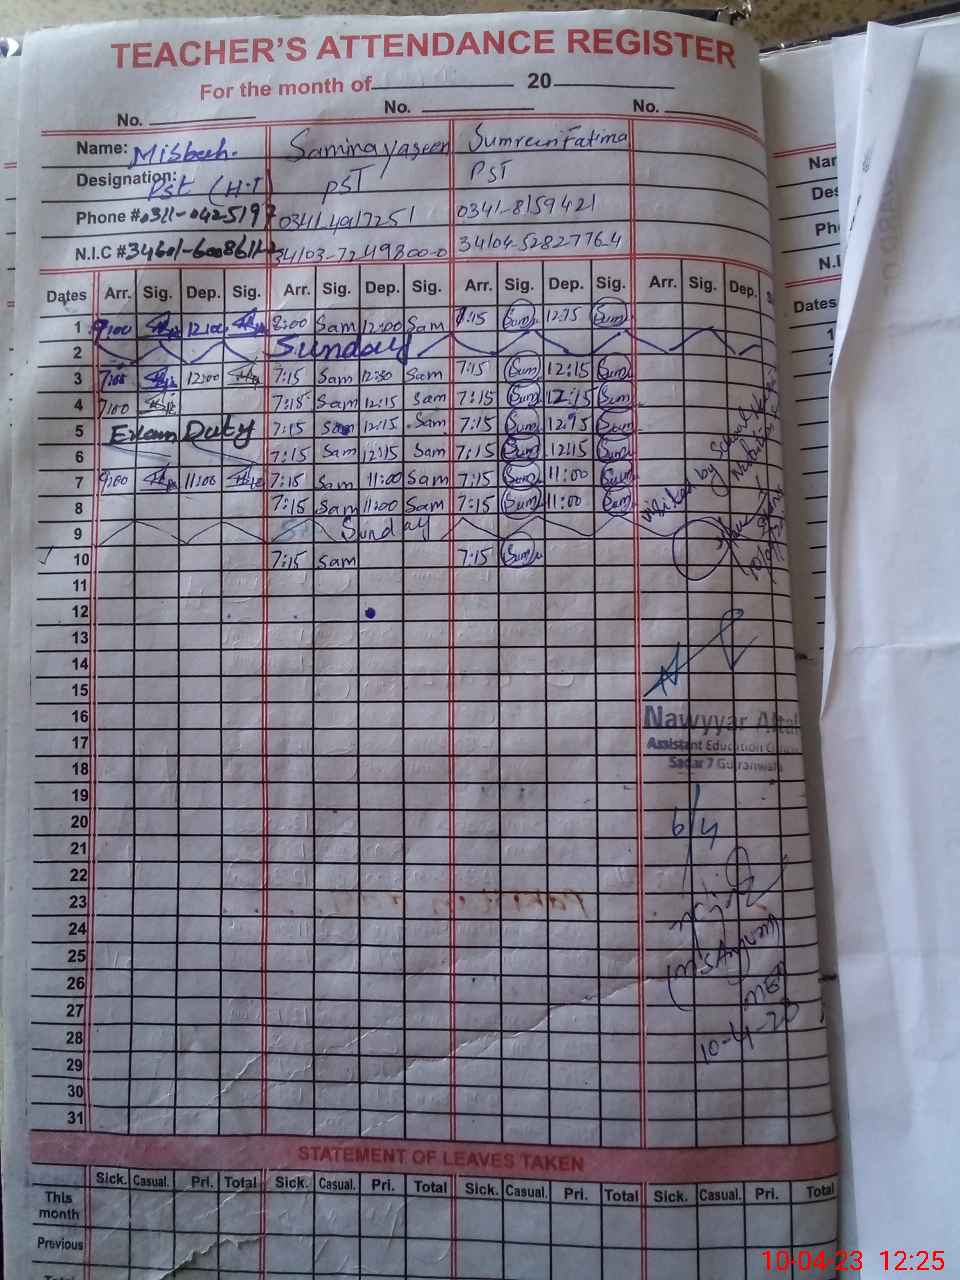 TEACHER'S ATTENDANCE REGISTER
For the month of 20
No. No. No.
Name: Misbah. Saminayaseen Sumreen Fatima
Designation: Pst (H.T) PST PST
Phone # 0311-0425197 0341 4917251 0341-8159421
N.I.C # 34601-6008611-2 34103-7249800-0 34104-5282776-4
Dates Arr. Sig. Dep. Sig. Arr. Sig. Dep. Sig. Arr. Sig. Dep. Sig. Arr. Sig. Dep.
1 9:00 12:00 8:00 Sam 12:00 Sam 7:15 Sum 12:15 Sum
2 Sunday
3 7:00 12:00 7:15 Sam 12:30 Sam 7:15 Sum 12:15 Sum
4 7:00 7:15 Sam 12:15 Sam 7:15 Sum 12:15 Sum
5 Exam Duty 7:15 Sam 12:15 Sam 7:15 Sum 12:15 Sum
6 7:15 Sam 12:15 Sam 7:15 Sum 12:15 Sum
7 9:00 11:00 7:15 Sam 11:00 Sam 7:15 Sum 11:00 Sum
8 7:15 Sam 11:00 Sam 7:15 Sum 11:00 Sum
9 Sunday
10 7:15 Sam 7:15 Sum
11
12
13
14
15
16
17
18
19
20
21
22
23
24
25
26
27
28
29
30
31
visited by school
Nawyyar
Assistant Education
Sadar 7 Gujranwala
6/4
10-4-23
STATEMENT OF LEAVES TAKEN
Sick. Casual. Pri. Total Sick. Casual. Pri. Total Sick. Casual. Pri. Total Sick. Casual. Pri. Total
This month
Previous
Total
Dates
10-04-23 12:25